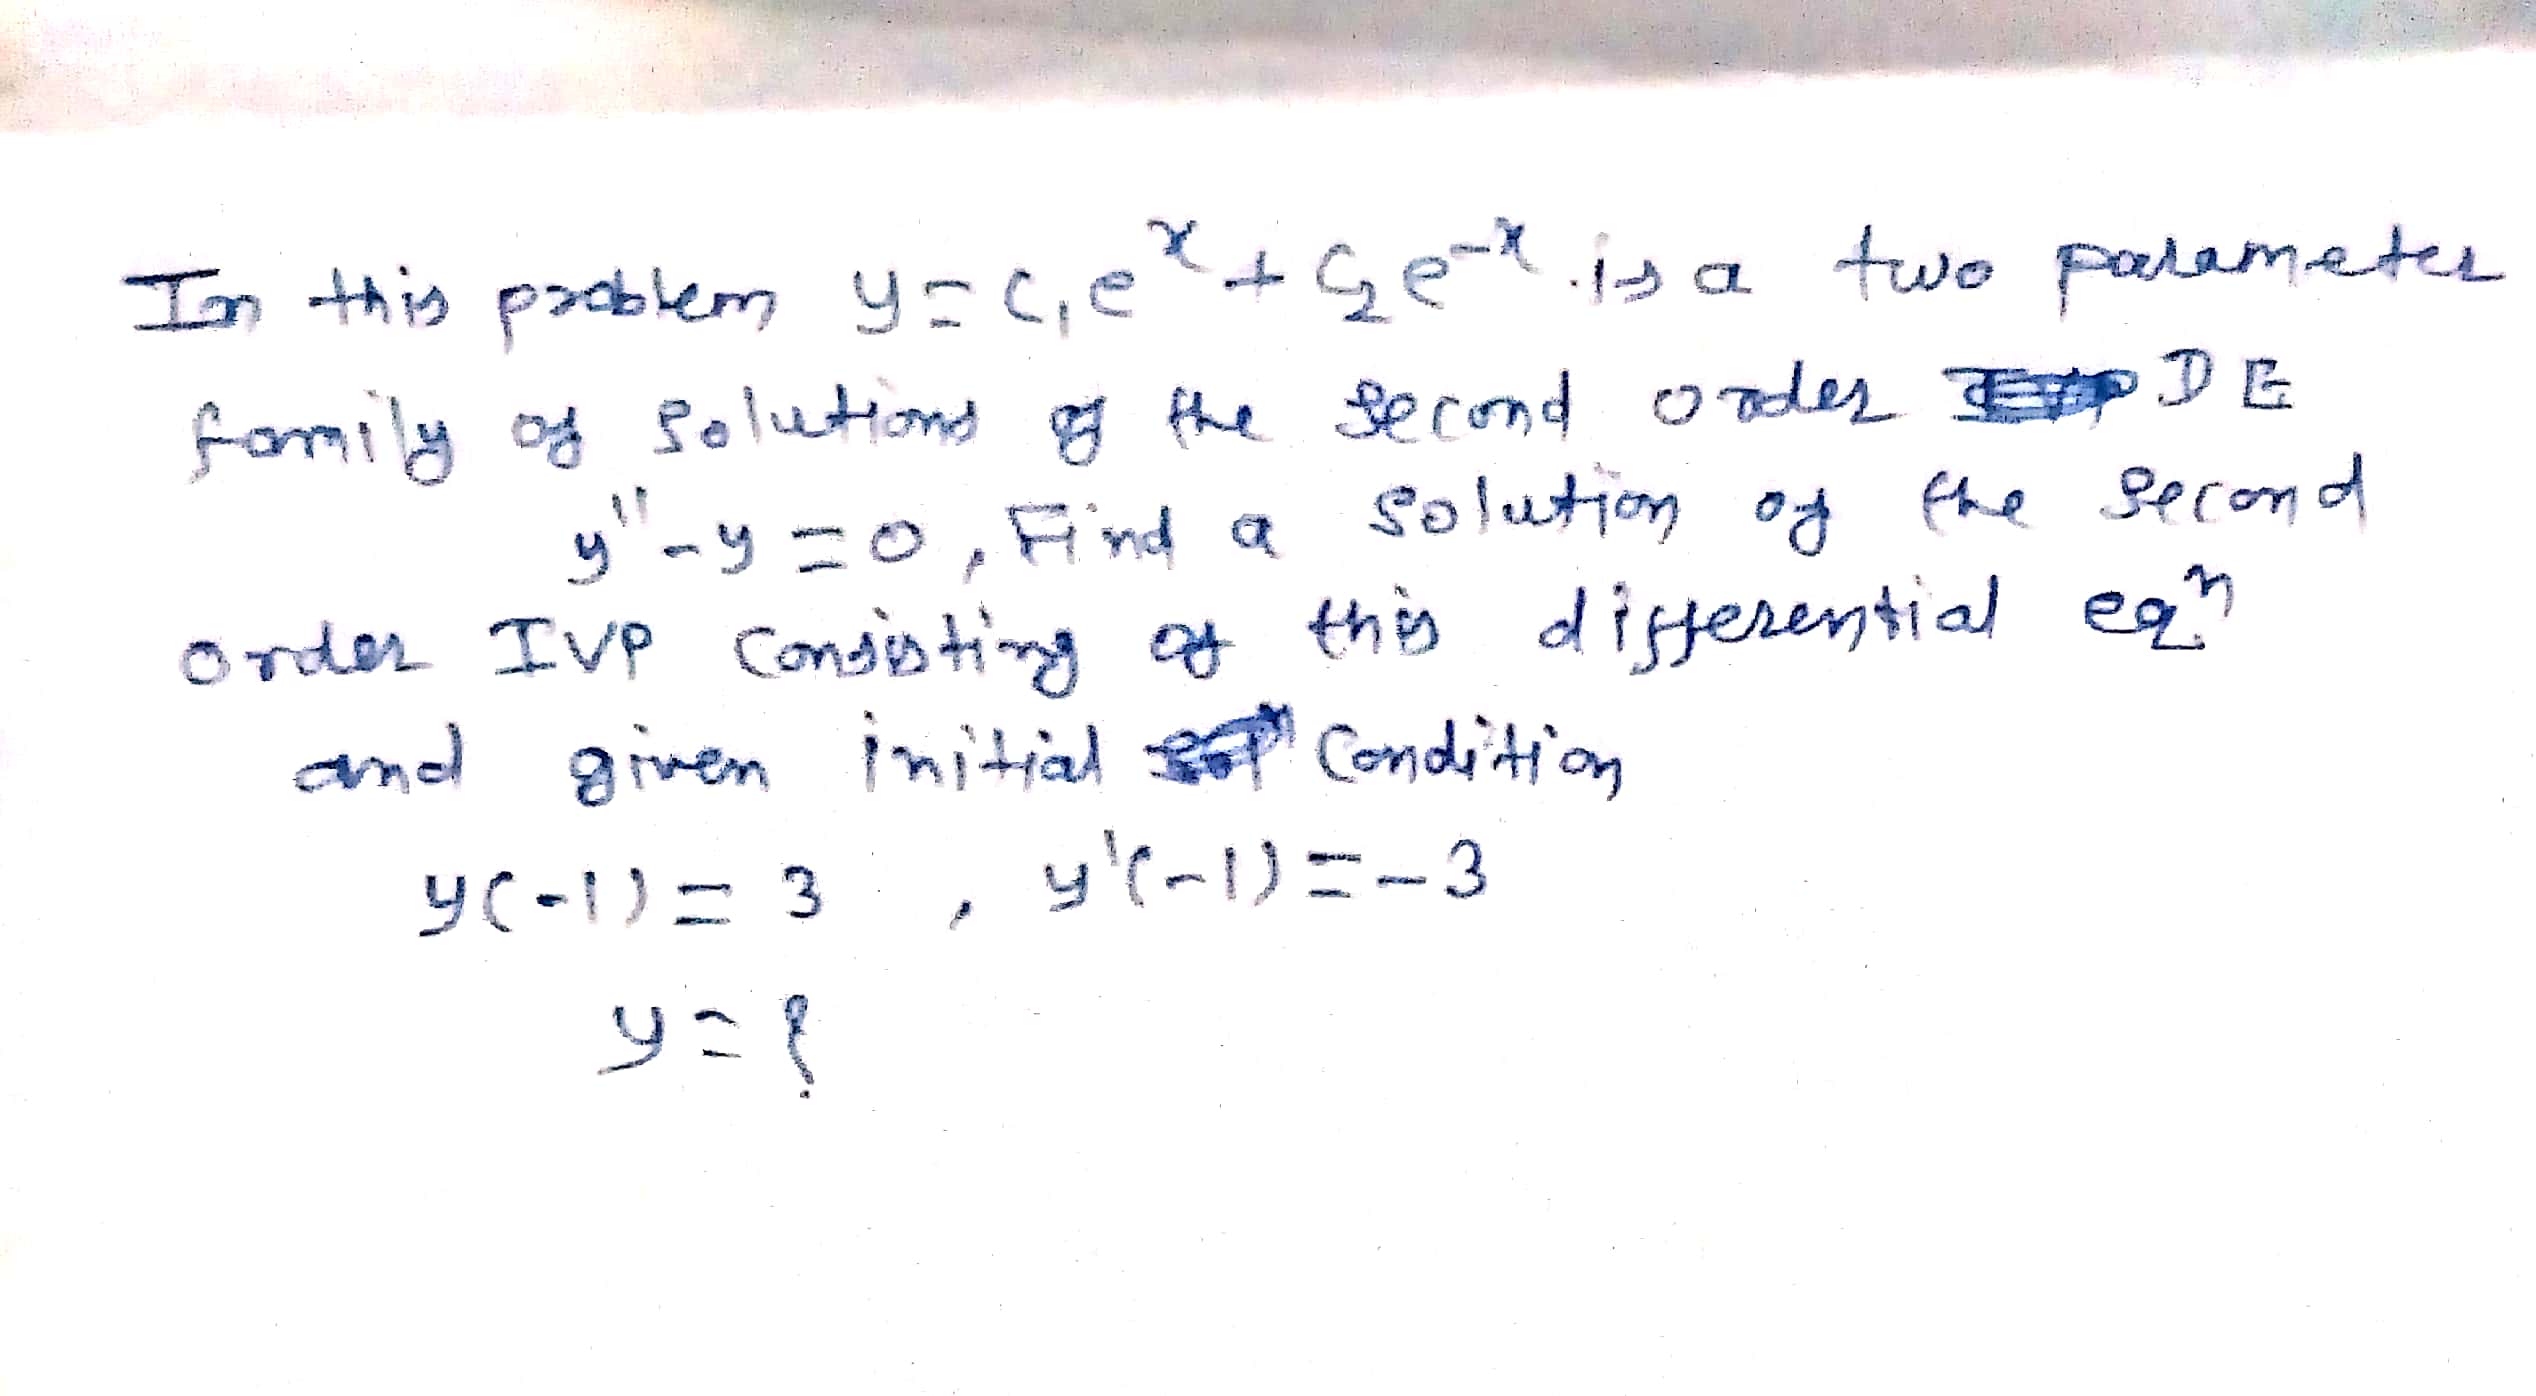 In this problem y = c₁eˣ + c₂e⁻ˣ is a two parameter
family of solutions of the second order DE
y'' - y = 0, Find a solution of the second
order IVP consisting of this differential eqⁿ
and given initial condition
y(-1) = 3 , y'(-1) = -3
y = ?